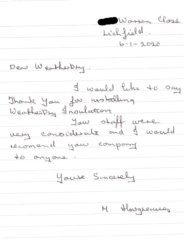 Warren Close
Lichfield.
6-1-2020
Dear Weatherdry.
I would like to say
Thank You for installing
Weatherdry Insulation
Your staff were
very considerate and I would
recomend your company
to anyone.
Yours Sincerely
M